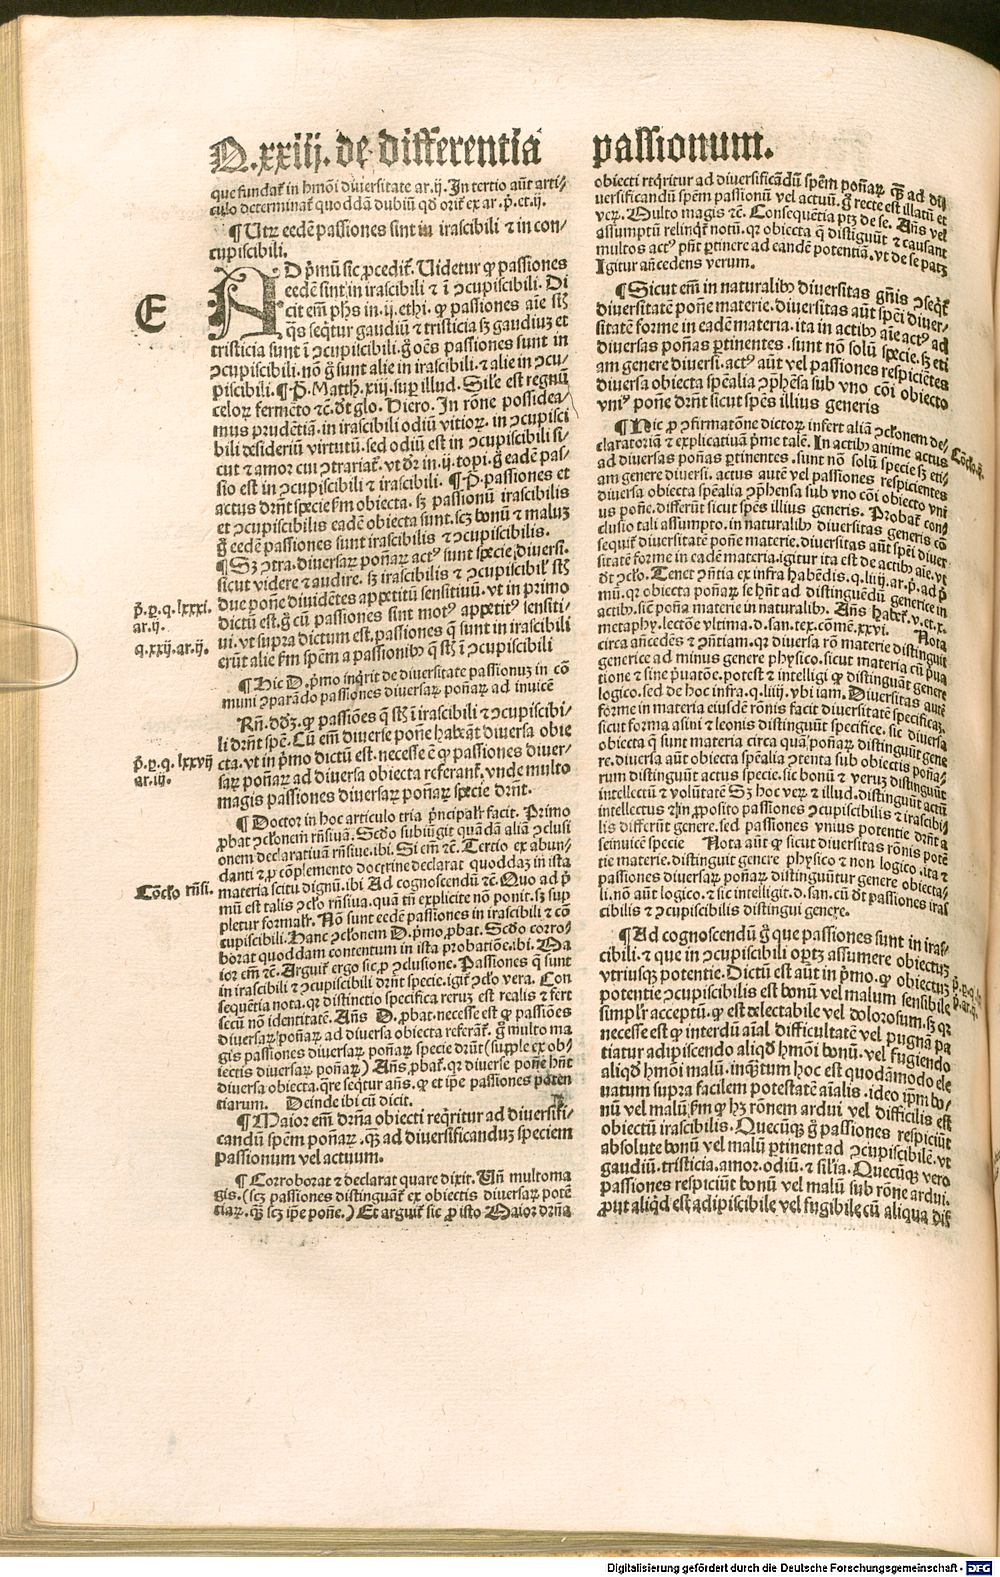 Q.xxiij. de differentia passionum.
que fundat᷑ in hmōi diuersitate ar.ij. In tertio aūt arti⸗
culo determinat᷑ quoddā dubiū qd̄ orit᷑ ex ar.p̄.et.ij.
¶ Utrꝝ eedē passiones sint in irascibili ⁊ in con⸗
cupiscibili.
E
AD p̄mū sic ꝓcedit᷑. Uidetur ꝙ passiones
eedē sint in irascibili ⁊ ī ꝯcupiscibili. Di
cit em̄ phs in.ij.ethi. ꝙ passiones aīe st̄
q̄s seq̄tur gaudiū ⁊ tristicia sꝫ gaudiuꝫ et
tristicia sunt ī ꝯcupiscibili. g̊ oēs passiones sunt in
ꝯcupiscibili. nō g̊ sunt alie in irascibili ⁊ alie in ꝯcu⸗
piscibili. ¶ P̄. Matth.xiij. suꝑ illud. Sil'e est regnū
celoꝝ fermēto ⁊c̄. dt̄ glo. Hiero. In rōne possidea⸗
mus prudētiā. in irascibili odiū vitioꝝ. in ꝯcupisci
bili desideriū virtutū. sed odiū est in ꝯcupiscibili si⸗
cut ⁊ amor cui ꝯtrariat᷑. vt dr̄ in.ij.topi. g̊ eadē pas⸗
sio est in ꝯcupiscibili ⁊ irascibili. ¶ P̄. passiones et
actus drn̄t specie ẜm obiecta. sꝫ passionū irascibilis
et ꝯcupiscibilis eadē obiecta sunt. scꝫ bonū ⁊ maluꝫ
g̊ eedē passiones sunt irascibilis ⁊ ꝯcupiscibilis.
¶ Sꝫ ꝯtra. diuersaꝝ poñaꝝ actꝰ sunt specie diuersi.
sicut videre ⁊ audire. sꝫ irascibilis ⁊ ꝯcupiscibil' st̄
due poñe diuidētes appetitū sensitiuū. vt in primo
p̄.p.q.lxxxi.
ar.ij.
dictū est. g̊ cū passiones sint motꝰ appetitꝰ sensiti⸗
ui. vt supra dictum est. passiones q̄ sunt in irascibili
q.xxij.ar.ij.
erūt alie ẜm spēm a passionibꝰ q̄ st̄ ī ꝯcupiscibili
¶ Hic D. p̄mo inq̄rit de diuersitate passionuꝫ in cō
muni ꝯparādo passiones diuersaꝝ poñaꝝ ad inuicē
Rn̄. dd̄ꝫ. ꝙ passiōes q̄ st̄ ī irascibili ⁊ ꝯcupiscibi⸗
li drn̄t spē. Cū em̄ diuerse poñe habeāt diuersa obie
cta. vt in p̄mo dictū est. necesse ē ꝙ passiones diuer⸗
p̄.p.q.lxxvij
ar.iij.
saꝝ poñaꝝ ad diuersa obiecta referant᷑. vnde multo
magis passiones diuersaꝝ poñaꝝ specie drn̄t.
¶ Doctor in hoc articulo tria p̄ncipalr̄ facit. Primo
ꝓbat ꝯcłonem rn̄siuā. Scdo subiūgit quādā aliā ꝯclusi
onem declaratiuā rn̄siue. ibi. Si em̄ ⁊c̄. Tertio ex abun⸗
danti ⁊ ꝓ cōplemento doctrine declarat quoddaꝫ in ista
Cōcło rn̄si.
materia scitu dignū. ibi Ad cognoscendū ⁊c̄. Quo ad p̄
mū est talis ꝯcło rn̄siua. quā tn̄ explicite nō ponit. sꝫ sup
pletur formalr̄. Nō sunt eedē passiones in irascibili ⁊ cō
cupiscibili. Hanc ꝯcłonem D. p̄mo ꝓbat. Scdo corro⸗
borat quoddam contentum in ista probatiōe. ibi. Ma
ior em̄ ⁊c̄. Arguit᷑ ergo sic ꝓ ꝯclusione. Passiones q̄ sunt
in irascibili ⁊ ꝯcupiscibili drn̄t specie. igit᷑ ꝯcło vera. Con
sequētia nota. qꝛ distinctio specifica reruꝫ est realis ⁊ fert
secū nō identitatē. Añs D. ꝓbat. necesse est ꝙ passiōes
diuersaꝝ poñaꝝ ad diuersa obiecta referāt᷑. g̊ multo ma
gis passiones diuersaꝝ poñaꝝ specie drūt (supple ex ob⸗
iectis diuersaꝝ poñaꝝ) Añs ꝓbat᷑. qꝛ diuerse poñe hn̄t
diuersa obiecta. q̄re seq̄tur añs. ꝙ et ip̄e passiones poten
tiarum. Deinde ibi cū dicit.
¶ Maior em̄ drn̄a obiecti req̄ritur ad diuersifi⸗
candū spēm poñaꝝ. q̄ꝫ ad diuersificanduꝫ speciem
passionum vel actuum.
¶ Corroborat ⁊ declarat quare dixit. Un̄ multo ma
gis. (scꝫ passiones distinguāt᷑ ex obiectis diuersaꝝ potē
tiaꝝ. q̄ꝫ scꝫ ip̄e poñe.) Et arguit᷑ sic ꝓ isto Maior drn̄a
obiecti req̄ritur ad diuersificādū spēm poñaꝝ q̄ꝫ ad di
uersificandū spēm passionū vel actuū. g̊ recte est illatū et
veꝝ. Multo magis ⁊c̄. Consequētia ptꝫ de se. Añs vel
assumptū relinq̄t᷑ notū. qꝛ obiecta q̄ distiguūt ⁊ causant
multos actꝰ pn̄t ꝑtinere ad eandē potentiā. vt de se patꝫ
Igitur añcedens verum.
¶ Sicut em̄ in naturalibꝰ diuersitas gn̄is ꝯseq̄t᷑
diuersitatē poñe materie. diuersitas aūt spēi diuer⸗
sitatē forme in eadē materia. ita in actibꝰ aīe actꝰ ad
diuersas poñas ꝑtinentes. sunt nō solū specie. sꝫ eti
am genere diuersi. actꝰ aūt vel passiones respiciētes
diuersa obiecta spēalia ꝯp̄hēsa sub vno cōi obiecto
vniꝰ poñe drn̄t sicut spēs illius generis
¶ Hic ꝓ ꝯfirmatōne dictoꝝ infert aliā ꝯcłonem de⸗
claratoriā ⁊ explicatiuā p̄me talē. In actibꝰ anime actus
Cōcło.ij.
ad diuersas poñas ꝑtinentes. sunt nō solū specie sꝫ eti⸗
am genere diuersi. actus autē vel passiones respicientes
diuersa obiecta spēalia ꝯp̄hensa sub vno cōi obiecto vni
us poñe. differūt sicut spēs illius generis. Probat᷑ con⸗
clusio tali assumpto. in naturalibꝰ diuersitas generis cō
sequit᷑ diuersitatē poñe materie. diuersitas aūt spēi diuer
sitatē forme in eadē materia. igitur ita est de actibꝰ aīe. vt
dt̄ ꝯcło. Tenet ꝯn̄tia ex infra habēdis. q.liiij. ar.p̄. ad p̄
mū. qꝛ obiecta poñaꝝ se hn̄t ad distinguēdū generice in
actibꝰ. sic̄ poña materie in naturalibꝰ. Añs habet᷑.v. et.x.
metaphy. lectōe vltima. d. san. tex. cōmē.xxvi. Nota
circa añcedēs ⁊ ꝯn̄tiam. qꝛ diuersa rō materie distinguit
generice ad minus genere physico. sicut materia cū p̄ua
tione ⁊ sine p̄uatōe. potest ⁊ intelligi ꝙ distinguāt genere
logico. sed de hoc infra. q.liiij. vbi iam. Diuersitas autē
forme in materia eiusdē rōnis facit diuersitatē specificaꝫ.
sicut forma asini ⁊ leonis distinguūt specifice. sic diuersa
obiecta q̄ sunt materia circa quā poñaꝝ distinguūt gene
re. diuersa aūt obiecta spēalia ꝯtenta sub obiectis poña⸗
rum distinguūt actus specie. sic bonū ⁊ veruꝫ distinguūt
intellectū ⁊ volūtatē Sꝫ hoc veꝝ ⁊ illud. distinguūt actū
intellectus ⁊ sīn ꝓposito passiones ꝯcupiscibilis ⁊ irascibi
lis differūt genere. sed passiones vnius potentie drn̄t a
seinuicē specie Nota aūt ꝙ sicut diuersitas rōnis potē
tie materie. distinguit genere physico ⁊ non logico. ita ⁊
passiones diuersaꝝ poñaꝝ distinguūtur genere obiecta⸗
li. nō aūt logico. ⁊ sic intelligit. d. san. cū dt̄ passiones iras
cibilis ⁊ ꝯcupiscibilis distingui genere.
¶ Ad cognoscendū g̊ que passiones sunt in iras⸗
cibili. ⁊ que in ꝯcupiscibili oꝑtꝫ assumere obiectuꝫ
vtriusqꝫ potentie. Dictū est aūt in p̄mo. ꝙ obiectuꝫ
potentie ꝯcupiscibilis est bonū vel malum sensibile
simplr̄ acceptū. ꝙ est delectabile vel dolorosum. sꝫ qꝛ
necesse est ꝙ interdū aīal difficultatē vel pugnā pa
tiatur adipiscendo aliqd̄ hmōi bonū. vel fugiendo
aliqd̄ hmōi malū. inq̄tum hoc est quodāmodo ele
uatum supra facilem potestatē aīalis. ideo ip̄m bo⸗
nū vel malū ẜm ꝙ hꝫ rōnem ardui vel difficilis est
obiectū irascibilis. Quecūqꝫ g̊ passiones respiciūt
absolute bonū vel malū ꝑtinent ad ꝯcupiscibilē. vt
gaudiū. tristicia. amor. odiū. ⁊ sil'ia. Quecūqꝫ vero
passiones respiciūt bonū vel malū sub rōne ardui.
ꝓut aliq̄d est adipiscibile vel fugibile cū aliqua dif
Digitalisierung gefördert durch die Deutsche Forschungsgemeinschaft - DFG